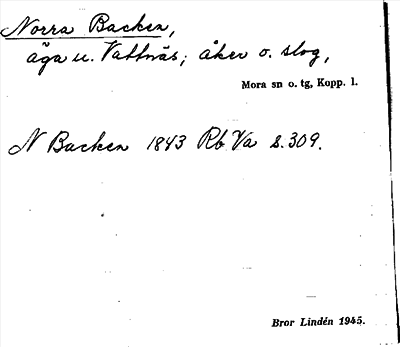 Norra Backen,
äga u. Vattnäs; åker o. slog,
Mora sn o. tg, Kopp. l.
N Backen 1843 Rb Va s. 309.
Bror Lindén 1945.